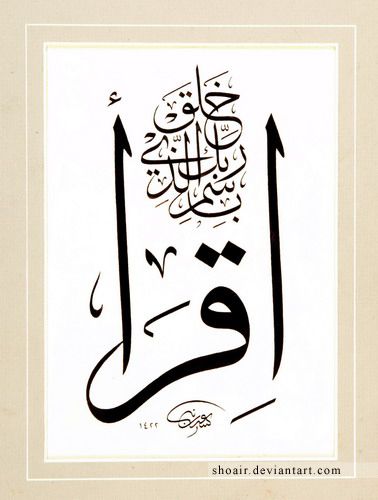 اِقْرَأْ
بِاسْمِ
رَبِّكَ الَّذِي
خَلَقَ
١٤٢٢
shoair.deviantart.com